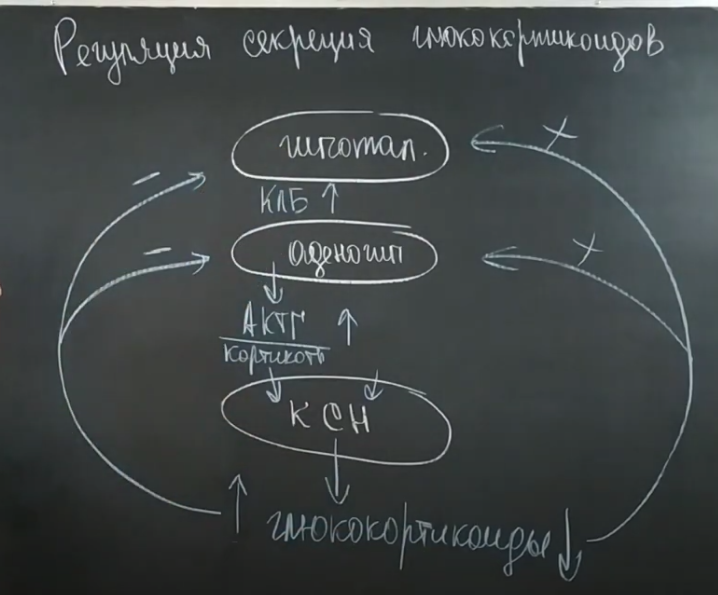 Регуляция секреция глюкокортикоидов
гипотал.
− +
КЛБ ↑
аденогип
− +
↓
АКТГ ↑
кортикотр
↓ ↓
КСН
↓
↑ глюкокортикоиды ↓